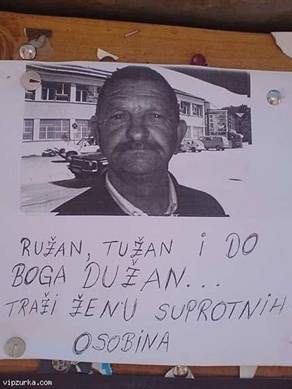 RUŽAN, TUŽAN I DO
BOGA DUŽAN...
TRAŽI ŽENU SUPROTNIH
OSOBINA
vipzurka.com